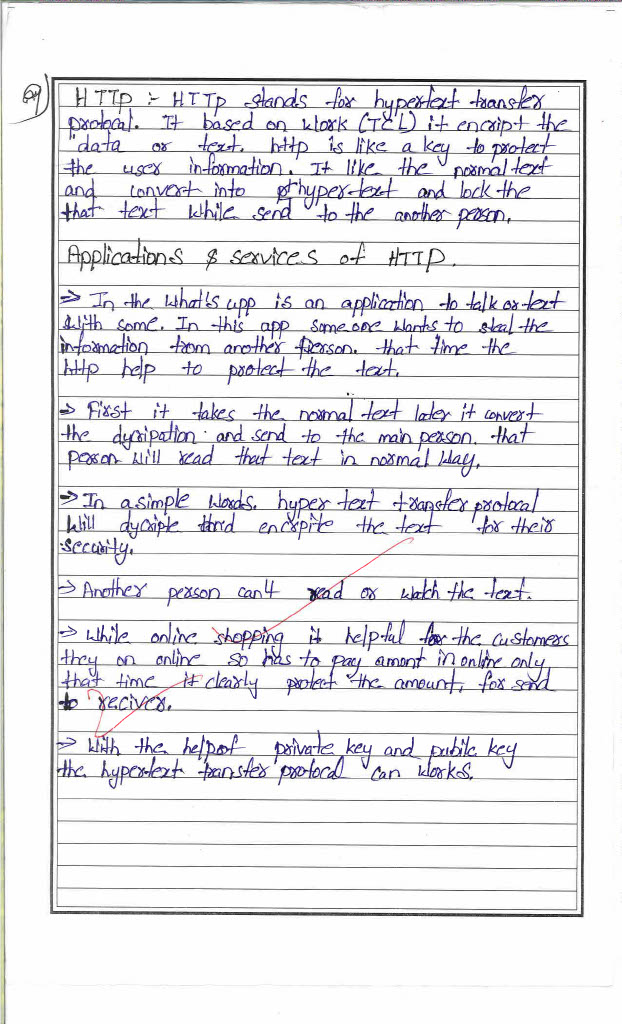 Q4) HTTP :- HTTP stands for hypertext transfer
protocal. It based on work (TCL) it encript the
"data or text. http is like a key to protect
the user information. It like the normal text
and convert into hypertext and lock the
that text while send to the another person.
Applications & services of HTTP.
=> In the What's upp is an application to talk or text
With some. In this app some one wants to steal the
information from another person. that time the
http help to protect the text.
=> First it takes the normal text later it convert
the dycripation and send to the main person. that
person will read that text in normal way.
=> In a simple words. hyper text transfer protocal
will dycriple and encrpite the text for their
security.
=> Another person can't read or watch the text.
=> While online shopping it helpful for the customers
they on online so has to pay amont in online only
that time it clearly protect the amount, for send
to reciver.
=> With the help of private key and pubilc key
the hypertext transfer protocal can works.